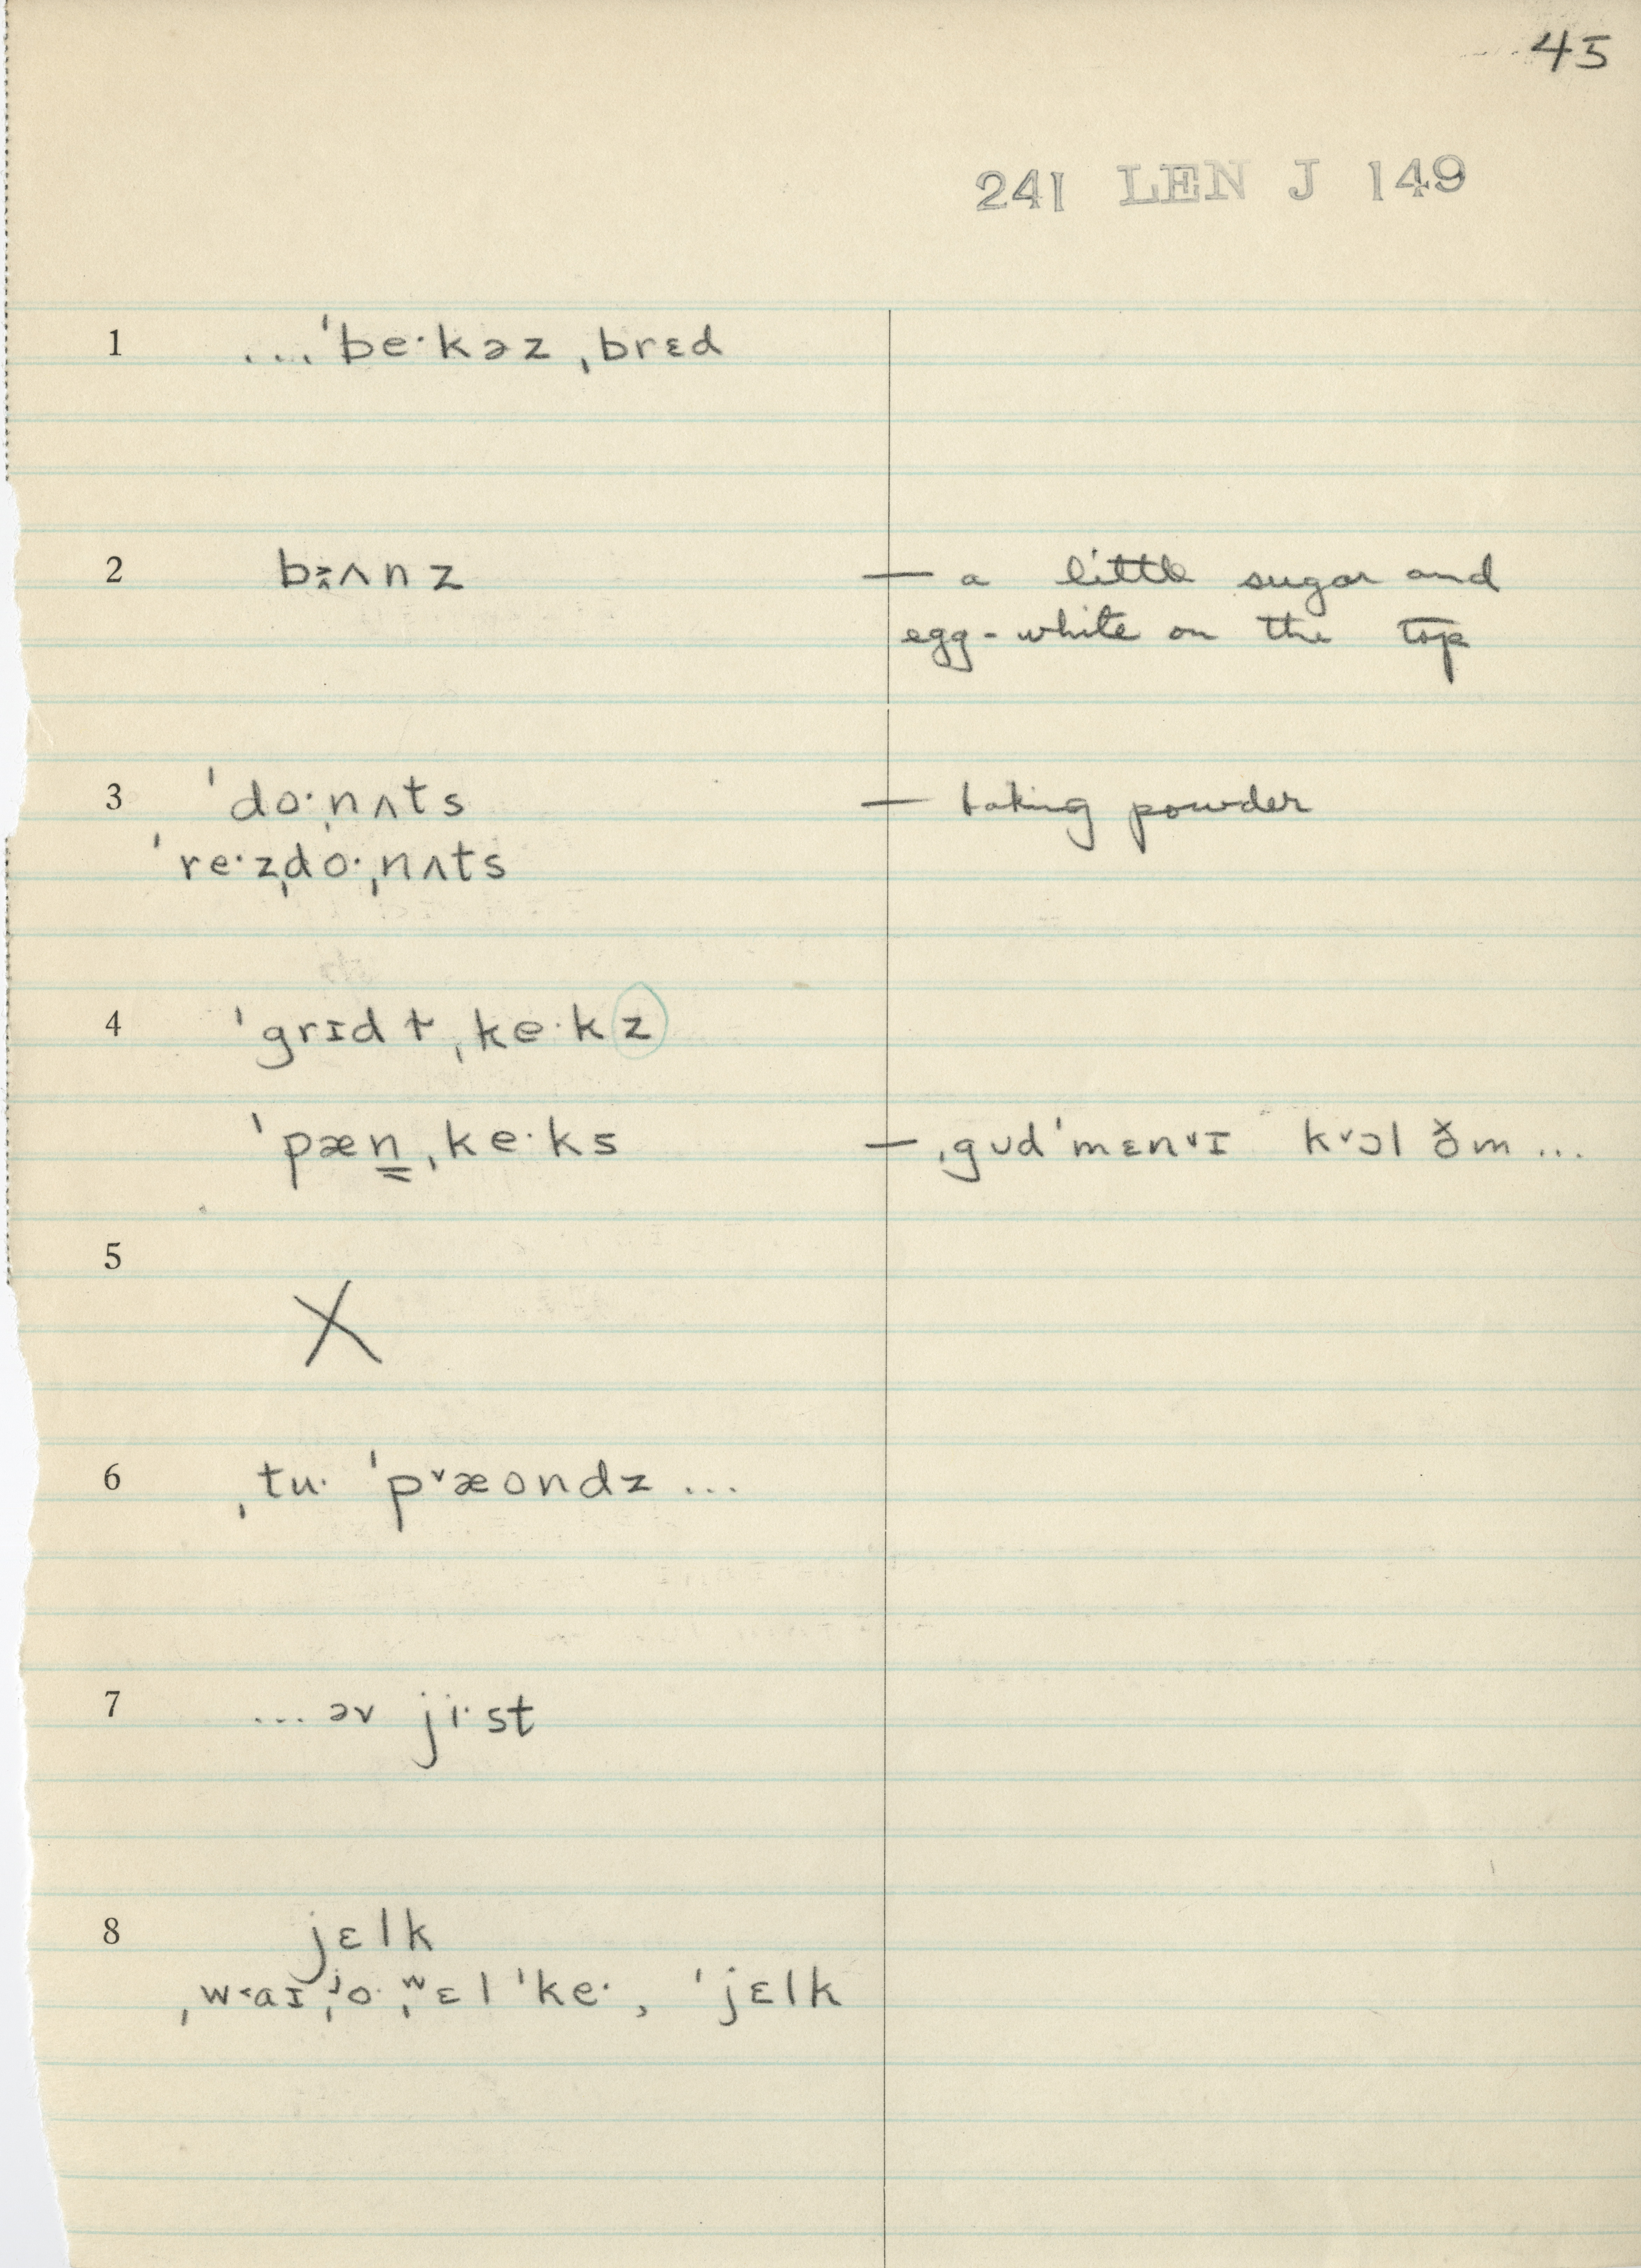 45
241 LEN J 149
1 ...ˈbe·kəz ˌbrɛd
2 bʌnz — a little sugar and
egg-white on the top
3 ˈdo·ˌnʌts — baking powder
ˈre·zˌdo·ˌnʌts
4 ˈgrɪd ɫˌke·kz
ˈpænˌke·ks — ˌgʊdˈmɛnᵛɪ kᵛɔl ðm...
5 X
6 ˌtu· ˈpᵛæondz ...
7 ... əv ji·st
8 jɛlk
ˌw˂aɪˌʲo·ˌʷɛl ˈke·, ˈjɛlk